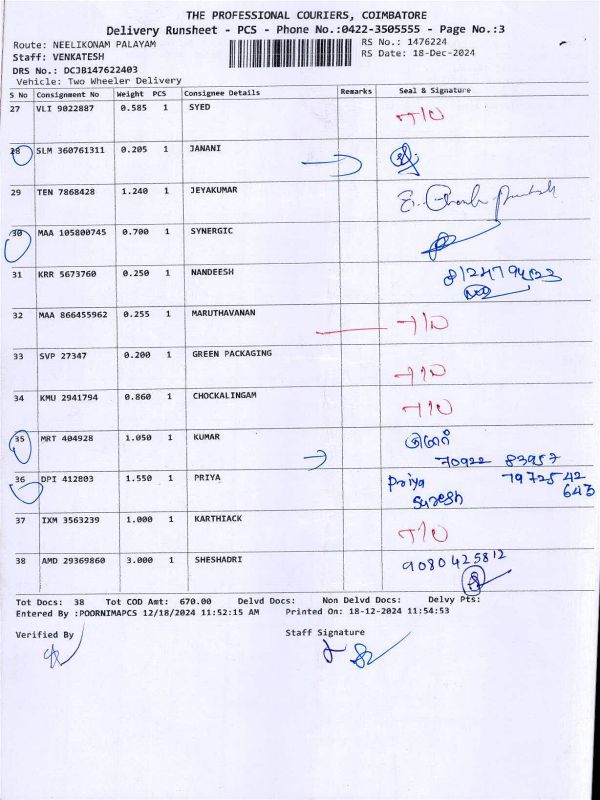 THE PROFESSIONAL COURIERS, COIMBATORE
Delivery Runsheet - PCS - Phone No.:0422-3505555 - Page No.:3
Route: NEELIKONAM PALAYAM
RS No.: 1476224
Staff: VENKATESH
RS Date: 18-Dec-2024
DRS No.: DCJB147622403
Vehicle: Two Wheeler Delivery
S No Consignment No Weight PCS Consignee Details Remarks Seal & Signature
27 VLI 9022887 0.585 1 SYED
28 SLM 360761311 0.205 1 JANANI
29 TEN 7868428 1.240 1 JEYAKUMAR
30 MAA 105800745 0.700 1 SYNERGIC
31 KRR 5673760 0.250 1 NANDEESH
32 MAA 866455962 0.255 1 MARUTHAVANAN
33 SVP 27347 0.200 1 GREEN PACKAGING
34 KMU 2941794 0.860 1 CHOCKALINGAM
35 MRT 404928 1.050 1 KUMAR
70922 83957
36 DPI 412803 1.550 1 PRIYA Priya 79725 42
Suresh 643
37 IXM 3563239 1.000 1 KARTHIACK
38 AMD 29369860 3.000 1 SHESHADRI 9080425812
Tot Docs: 38 Tot COD Amt: 670.00 Delvd Docs: Non Delvd Docs: Delvy Pts:
Entered By :POORNIMAPCS 12/18/2024 11:52:15 AM Printed On: 18-12-2024 11:54:53
Verified By Staff Signature